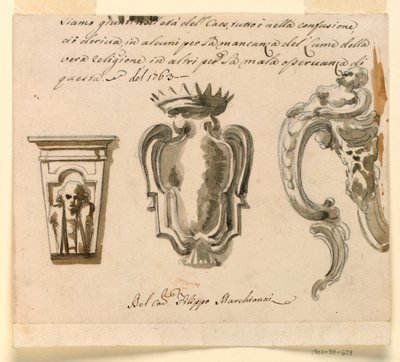 Siamo giunti nell'età dell'Caos, tutto è nella confusione
ciò deriva, in alcuni per la mancanza del Lume della
vera religione in altri per la mala osservanza di
questa. del 1763
Del Filippo Marchionni
1901-39-678